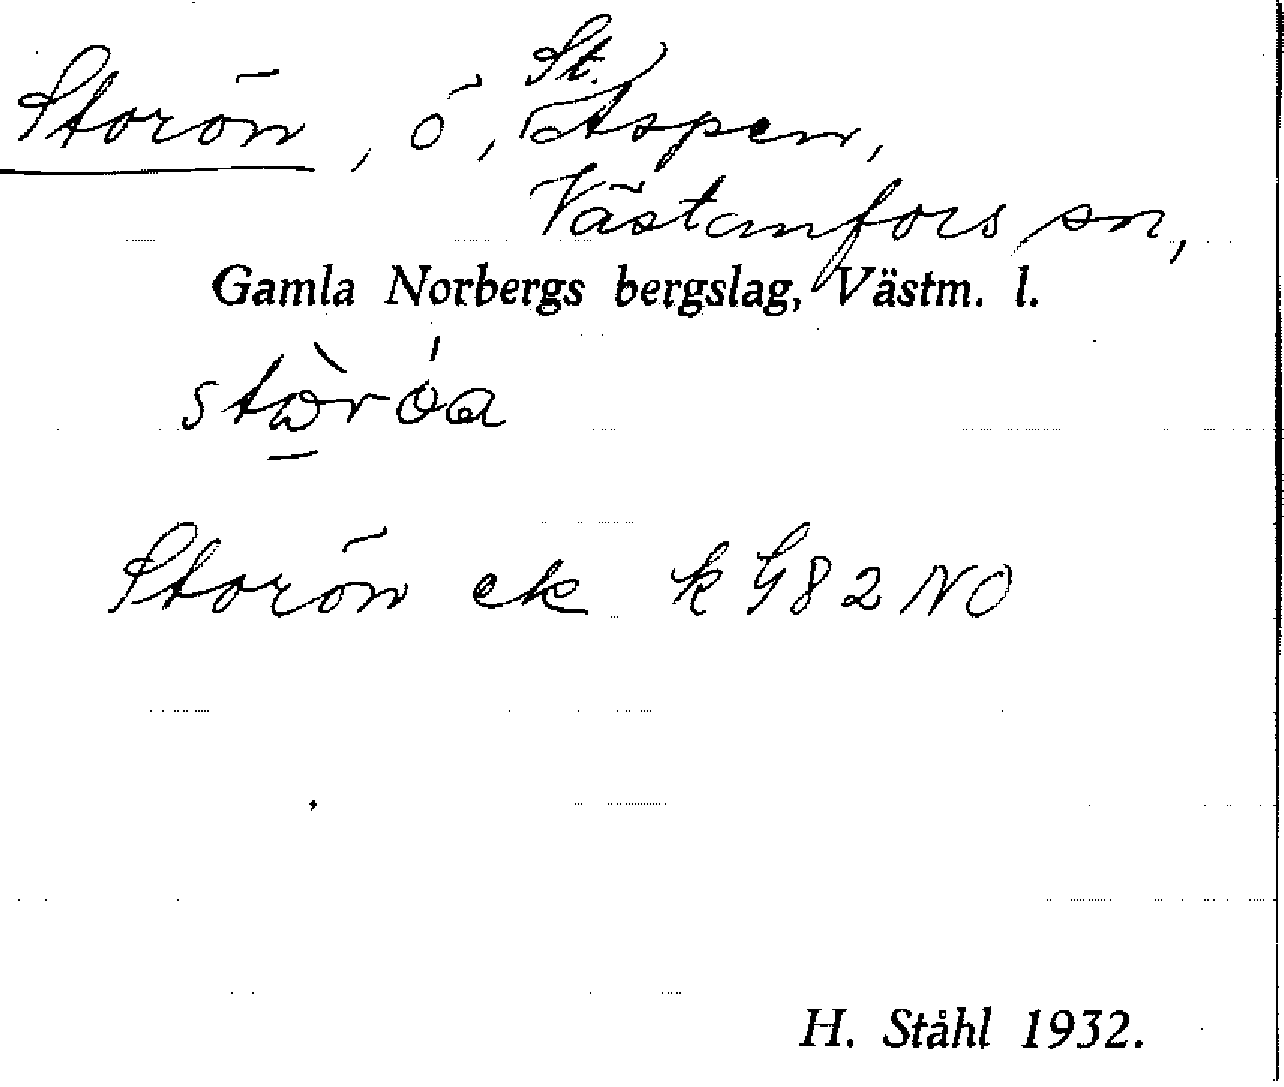 Storön, ö, St. Aspen,
Västanfors sn,
Gamla Norbergs bergslag, Västm. l.
stòróa
Storön ek k G82NO
H. Ståhl 1932.